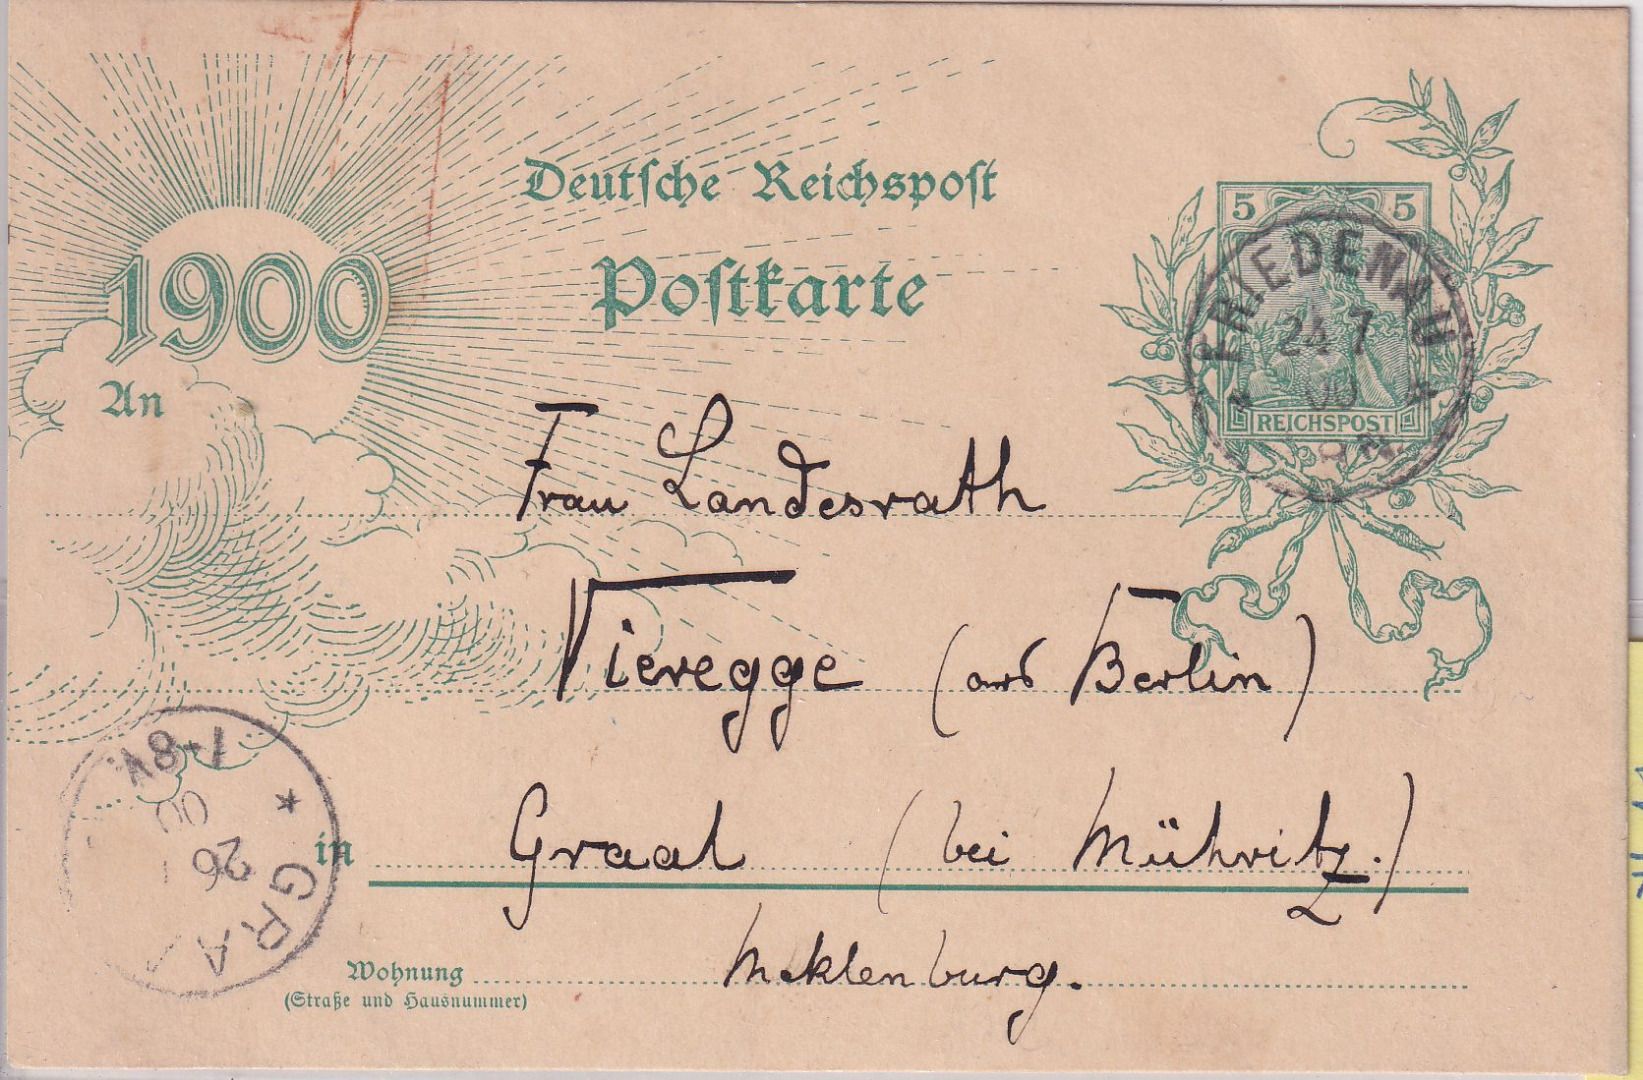 Deutsche Reichspost
Postkarte
1900
5 5
FRIEDENAU
24 7
00
REICHSPOST
An
Frau Landesrath
Vieregge (aus Berlin)
in Graal (bei Mühritz.)
Meklenburg.
Wohnung
(Straße und Hausnummer)
* GRA
26
00
7-8V.